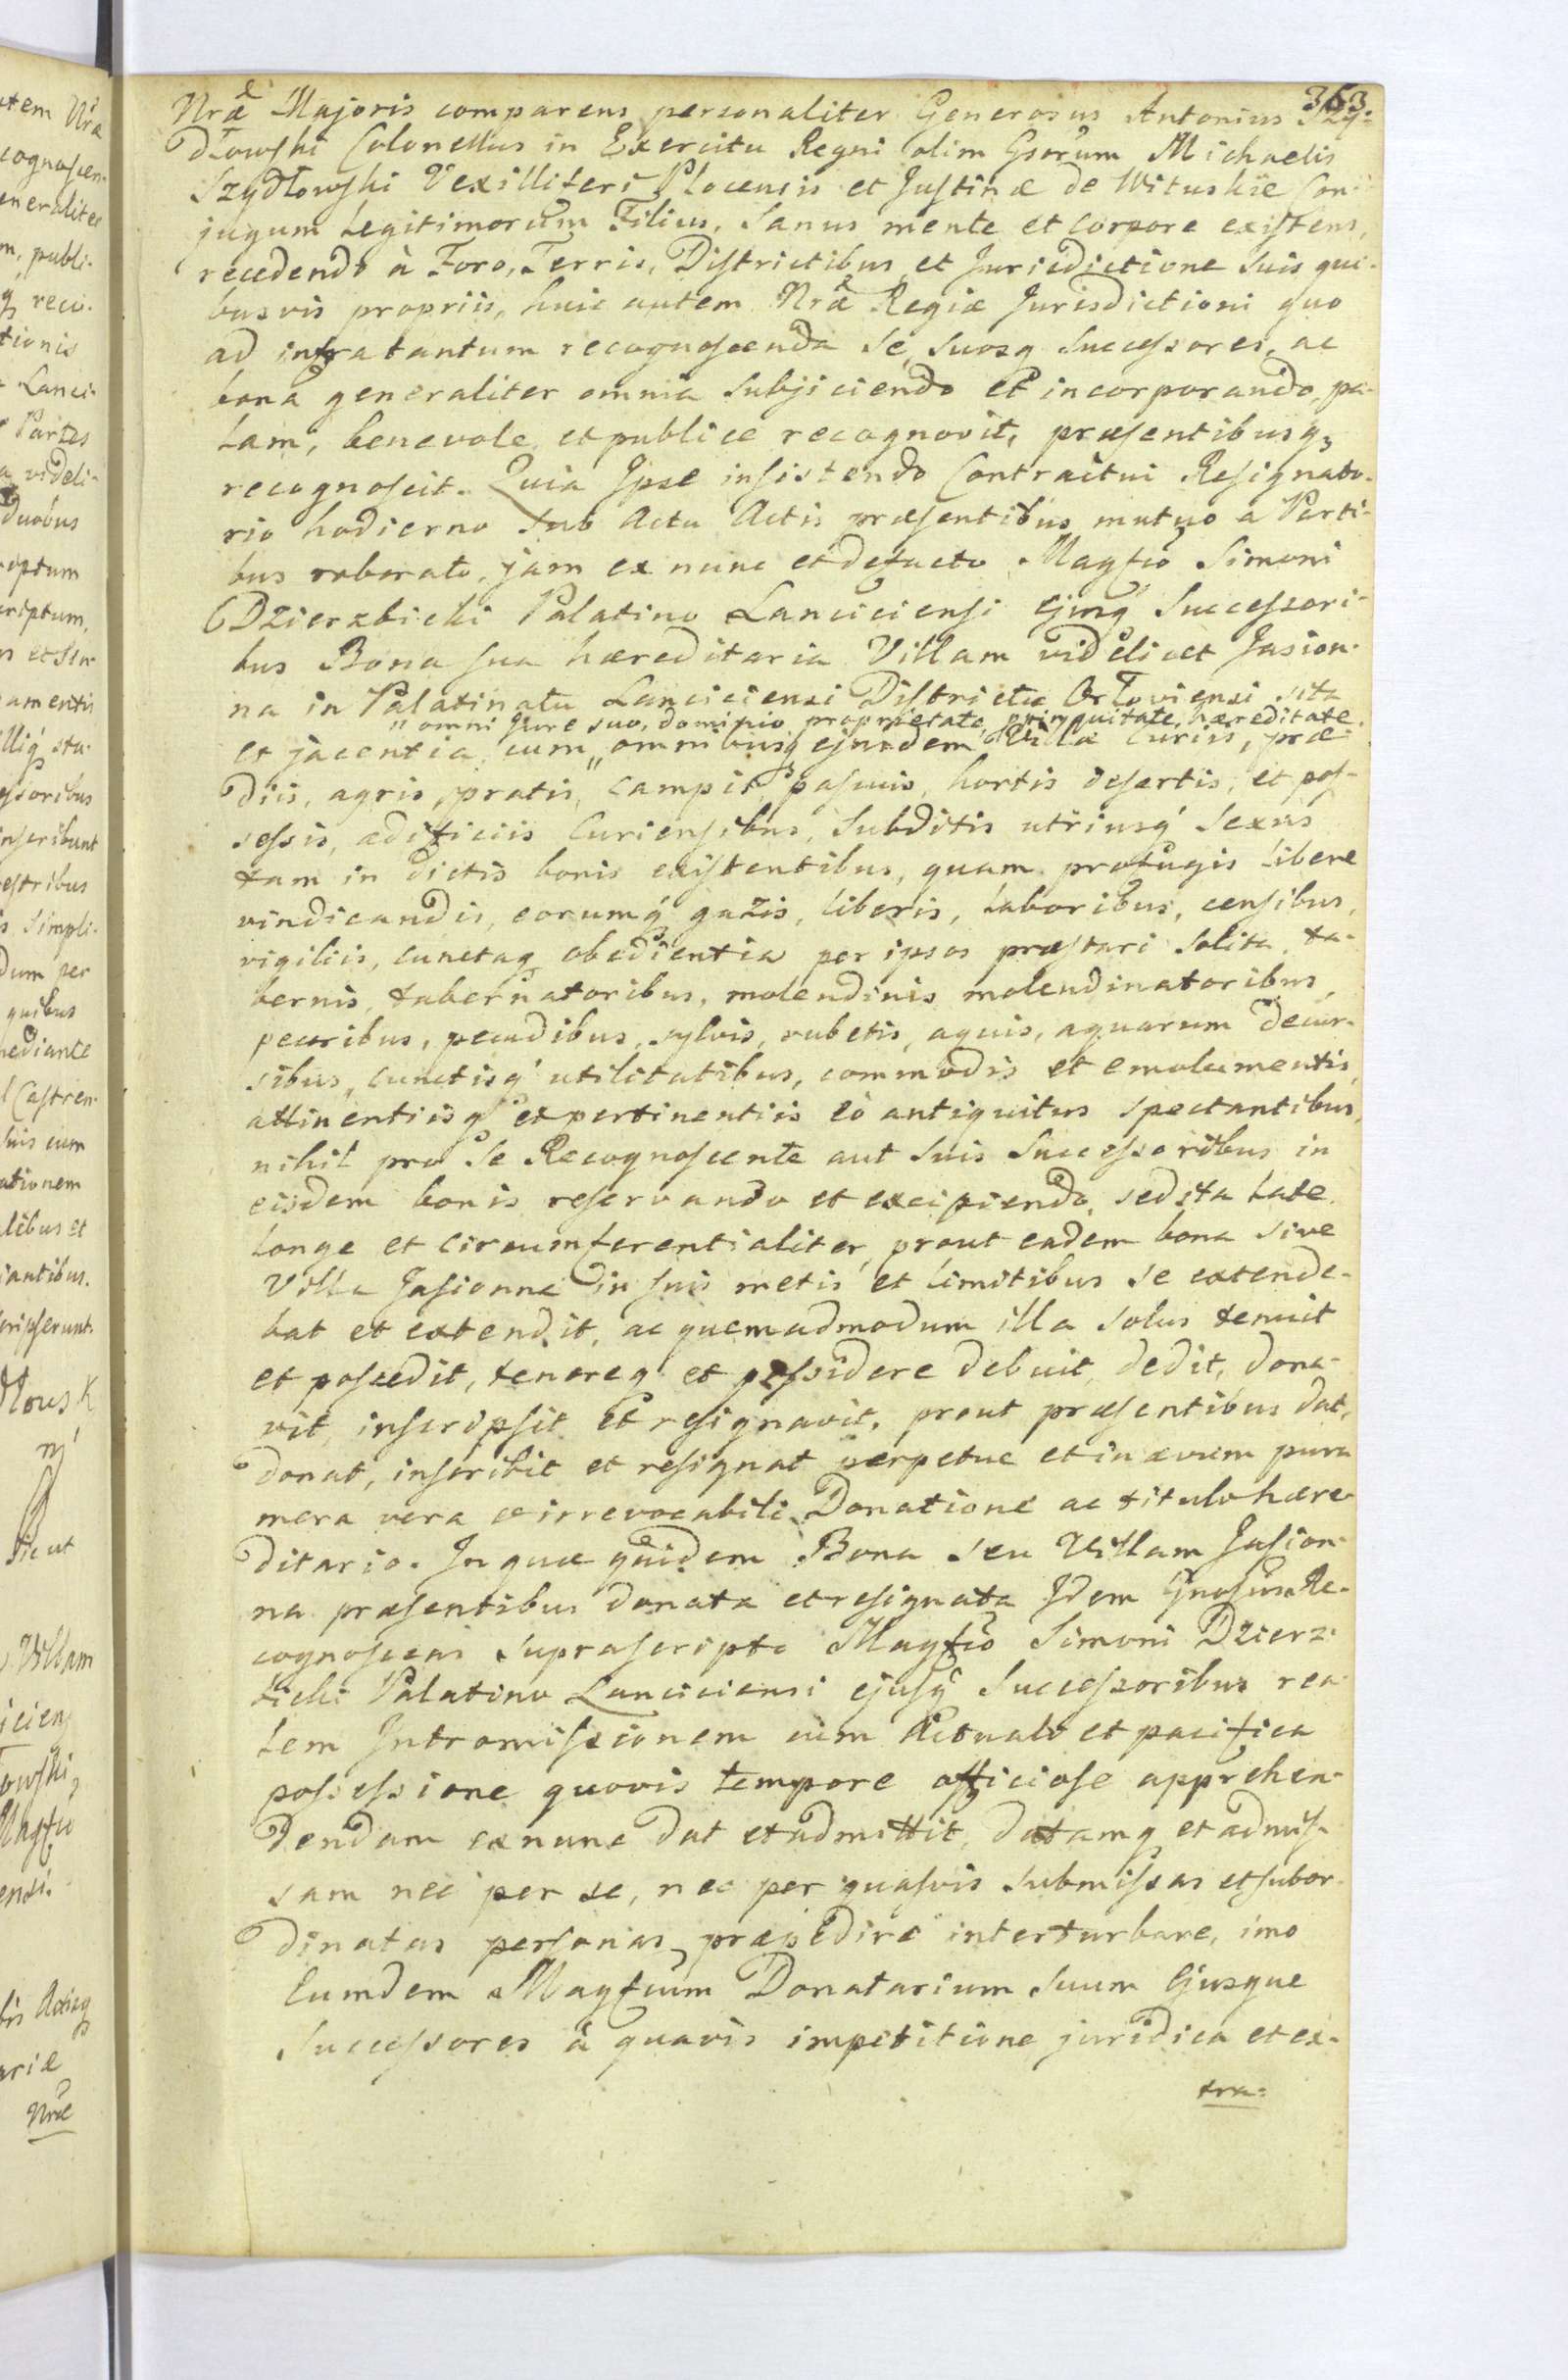 363.
Nræ Majoris comparens personaliter Generosus Antonius Szy-
dłowski Colonellus in Exercitu Regni olim Gsorum Michaelis
Szydłowski Vexilliferi Plocensis et Justinæ de Wituskie Con-
jugum Legitimorum Filius, Sanus mente et Corpore existens,
recedendo à Foro, Terris, Districtibus et Jurisdictione Suis qui-
busvis propriis, huic autem Nræ Regiæ Jurisdictioni quo
ad infra tantum recognoscenda Se, Suosq Successores, ac
bona generaliter omnia Subjiciendo et incorporando, pa-
lam, benevole et publice recognovit, præsentibusq3
recognoscit. Quia Ipse insistendo Contractui Resignato-
rio hodierno Sub Actu Actis præsentibus mutuo a Parti-
bus roborato, jam ex nunc et defacto Magfco Simoni
Dzierzbicki Palatino Lanciciensi ejusq Successori-
bus Bona sua hæreditaria Villam videlicet Jasion-
na in Palatinatu Lanciciensi Districtu Orłoviensi sita
" omni Jure suo, dominio proprietate, propinquitate, hæreditate
et jacentia, cum " omnibusq ejusdem Villæ Curiis, præ-
diis, agris, pratis, campis, pascuis, hortis desertis, et pos-
sessis, ædificiis Curiensibus, Subditis utriusq Sexus
tam in dictis bonis existentibus, quam profugis libere
vindicandis, eorumq gazis, liberis, laboribus, censibus,
vigiliis, cunctaq obedientia per ipsos præstari solita, ta-
bernis, tabernatoribus, molendinis molendinatoribus,
pecoribus, pecudibus, sylvis, rubetis, aquis, aquarum decur-
sibus, cunctisq utilitatibus, commodis et emolumentis,
attinentiisq et pertinentiis eò antiquitus spectantibus,
nihil pro Se Recognoscente aut Suis Successoribus in
eisdem bonis reservando et excipiendo, sed ita late
longe et circumferentialiter, prout eadem bona sive
Villa Jasionna in suis metis et limitibus se extende-
bat et extendit, ac quemadmodum illa solus tenuit
et possedit, tenereq et possidere debuit, dedit, dona-
vit, inscripsit et resignavit, prout præsentibus dat,
donat, inscribit et resignat perpetue et in ævum pura
mera vera et irrevocabili Donatione ac titulo hære-
ditario. In quæ quidem Bona seu Villam Jasion-
na præsentibus donata et resignata Idem Gnosus Re-
cognoscens suprascripto Magfco Simoni Dzierz-
bicki Palatino Lanciciensi ejusq Successoribus rea-
lem Intromissionem cum Actuali et pacifica
possessione quovis tempore officiose apprehen-
dendam ex nunc dat et admittit, datamq et admis-
sam nec per se, nec per quasvis submissas et subor-
dinatas personas, præpedire interturbare, imo
Eumdem Magfcum Donatarium Suum Ejusque
Successores à quavis impetitione juridica et ex-
tra-